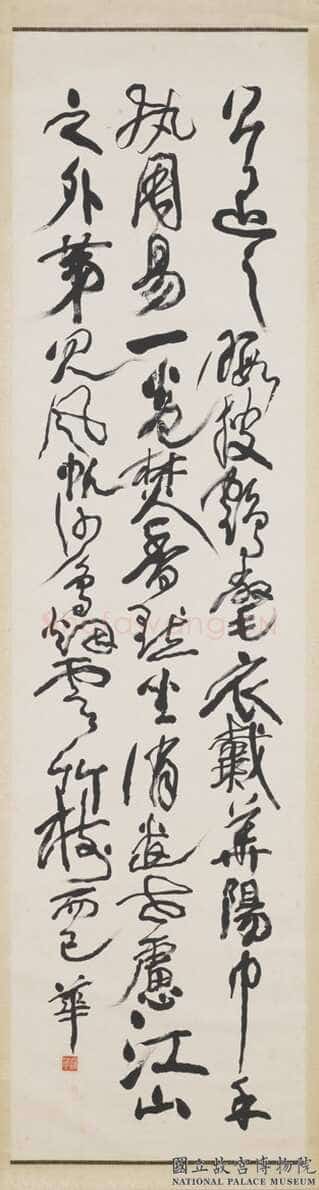 公退之暇披鶴氅衣戴華陽巾手
執周易一卷焚香默坐消遣世慮江山
之外第見風帆沙鳥烟雲竹樹而已 華
國立故宮博物院
NATIONAL PALACE MUSEUM